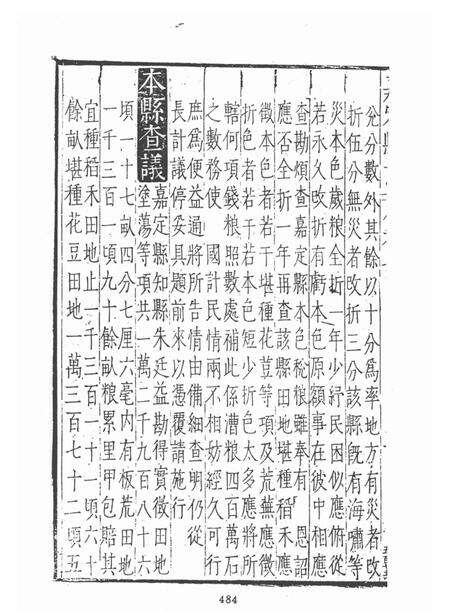 兊分數外其餘以十分爲率地方有災者改
折伍分無災者改折三分該縣既有海嘯等
災本色歲粮全折一年少紓民困似應俯從
若永久改折有虧本色原額事在彼中相應
查勘煩查嘉定縣本色稅粮雖奉有　恩詔
應否全折一年再查該縣田地堪種稻禾應
徵本色者若干堪種花荳等項及荒蕪應徵
折色者若干若本色短少折色太多應將所
轄何項錢粮照數處補此係漕粮四百萬石
之數務使　國計民情兩不相妨經久可行
庶爲便益通將所告情由備細查明仍從
長計議停妥具題前來以憑覆請施行
本縣查議嘉定縣知縣朱廷益勘得實徵田地
塗蕩等項共一萬二千九百八十六
頃一十七畝四分七厘六毫内有板荒田地
一千三百一頃九十餘畝粮累里甲包賠其
宜種稻禾田地止一千三百一十一頃六十
餘畝堪種花豆田地一萬三百七十二頃五
484